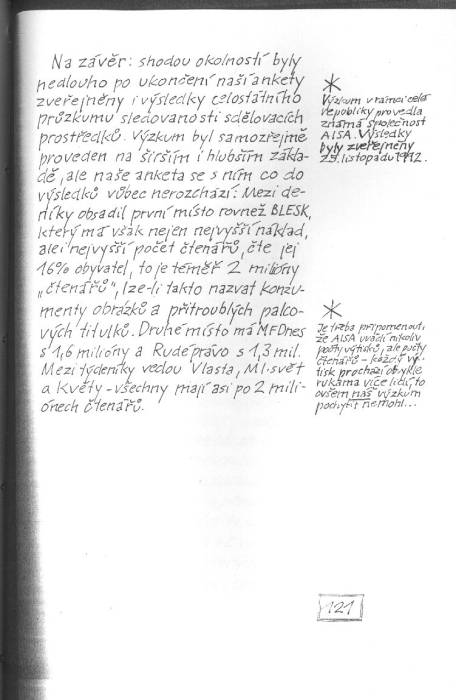 Na závěr: shodou okolností byly
nedlouho po ukončení naší ankety
zveřejněny i výsledky celostátního
průzkumu sledovanosti sdělovacích
prostředků. Výzkum byl samozřejmě
proveden na širším i hlubším zákla-
dě, ale naše anketa se s ním co do
výsledků vůbec nerozchází: Mezi de-
níky obsadil první místo rovněž BLESK,
který má však nejen nejvyšší náklad,
ale i nejvyšší počet čtenářů, čte jej
16% obyvatel, to je téměř 2 milióny
„čtenářů", lze-li takto nazvat konzu-
menty obrázků a přitroublých palco-
vých titulků. Druhé místo má MFDnes
s 1,6 milióny a Rudé právo s 1,3 mil.
Mezi týdeníky vedou Vlasta, Ml. svět
a Květy - všechny mají asi po 2 mili-
ónech čtenářů.
*
Výzkum v rámci celé
republiky provedla
známá společnost
AISA. Výsledky
byly zveřejněny
listopadu
*
Je třeba připomenout,
že AISA uvádí nikoliv
počty výtisků, ale počty
čtenářů - každý vý-
tisk prochází obvykle
rukama více lidí, to
ovšem náš výzkum
pochytit nemohl...
121